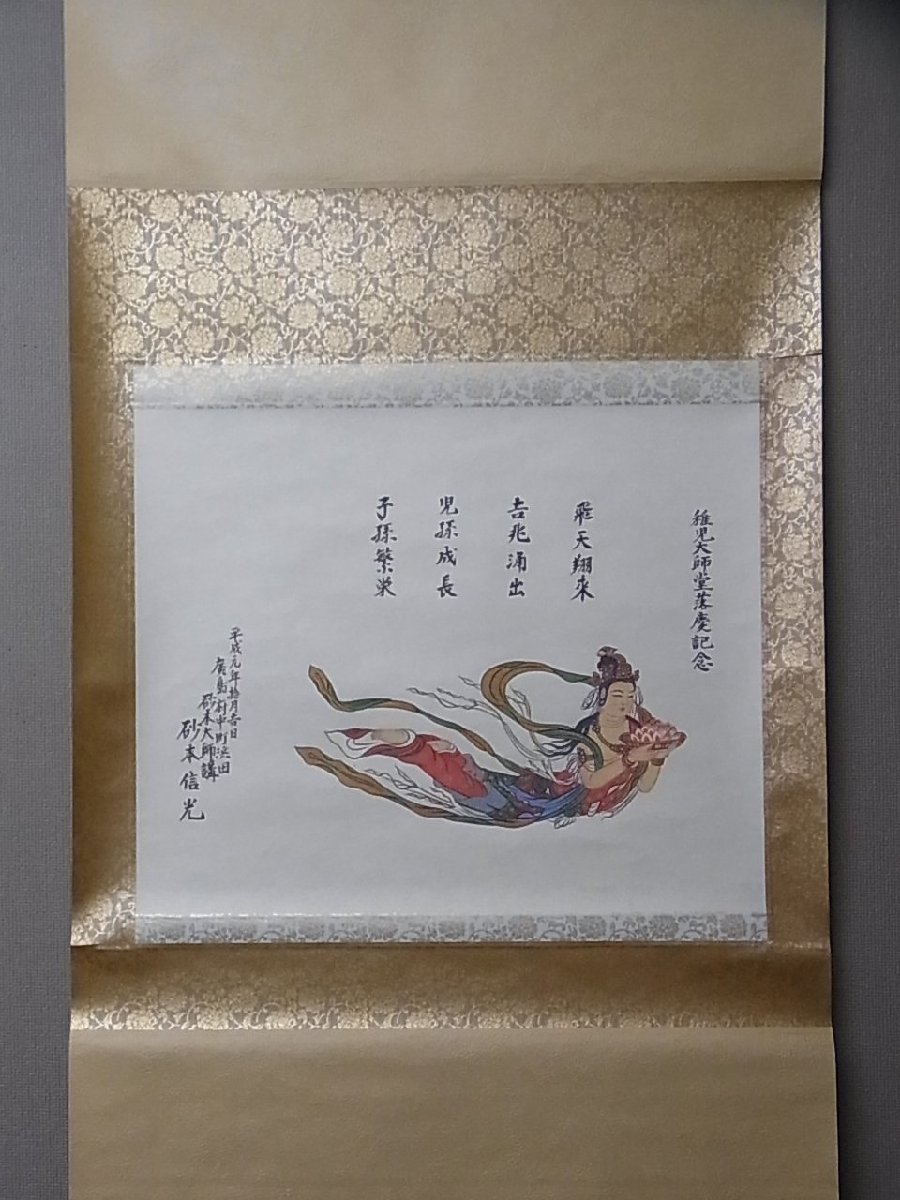 稚児大師堂落慶記念
飛天翔来
吉兆涌出
児孫成長
子孫繁栄
平成元年拾月吉日
廣島府中町浜田
砂本大師講
砂本信光